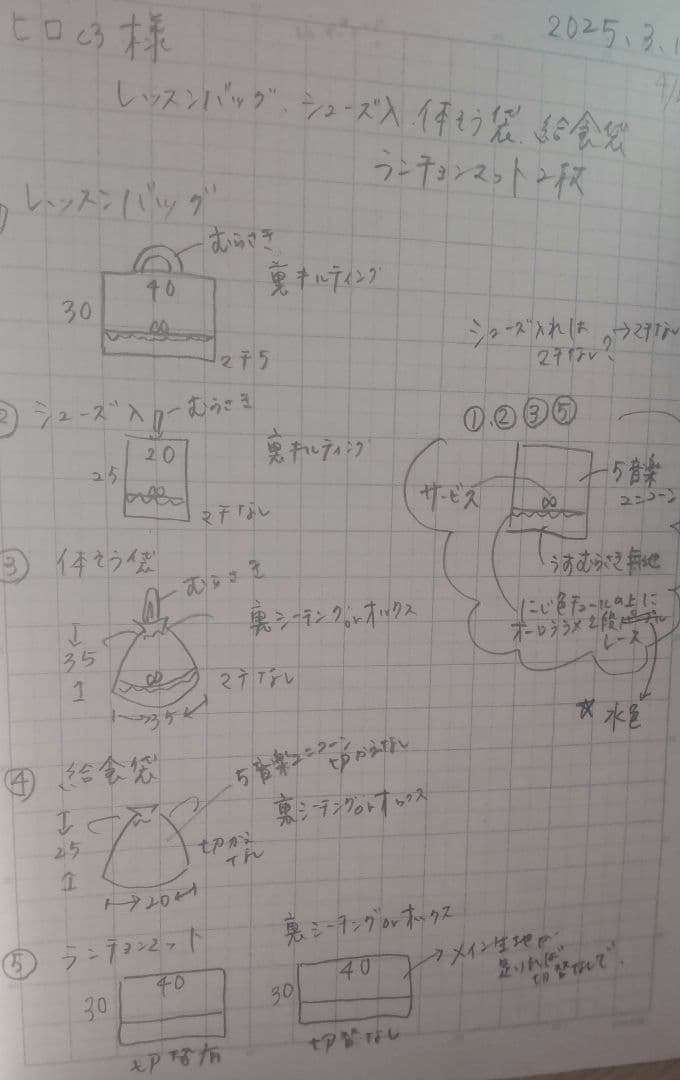 ヒロ様
2025.3.1
レッスンバッグ、シューズ入、体そう袋、給食袋
ランチョンマット2枚
レッスンバッグ
むらさき
40
裏キルティング
30
マチ5
シューズ入れは
マチなし? →マチなし
② シューズ入
むらさき
20
裏キルティング
25
マチなし
①、②③⑤
サービス
5音楽
ユニコーン
うすむらさき無地
にじ色チュールの上に
オーロララメ2段
レース
☆水色
③ 体そう袋
むらさき
裏シーチングorオックス
35
マチなし
35
④ 給食袋
5音楽ユニコーン
切かえなし
裏シーチングorオックス
25
切かえ
なし
20
⑤ ランチョンマット
裏シーチングorオックス
40
30
切替有
40
30
切替なし
メイン生地で
足りれば
切替なしで